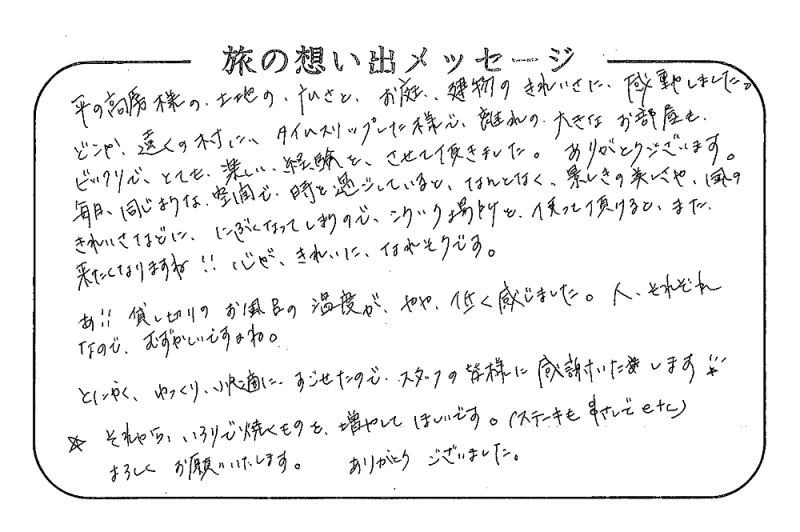 旅の想い出メッセージ
平の高房様の、土地の、広さと、お庭、建物のきれいさに、感動しました。
どこか、遠くの村に、タイムスリップした様で、離れの、大きなお部屋も、
ビックリで、とても、楽しい、経験を、させて頂きました。ありがとうございます。
毎日、同じような、空間で、時を過ごしていると、なんとなく、景しきの美しさや、風の
きれいさなどに、にぶくなってしまうので、こういう場所を、使って頂けると、また、
来たくなりますね!! 心が、きれいに、なれそうです。
あ!! 貸し切りのお風呂の温度が、やや、低く感じました。人、それぞれ
なので、むずかしいですよね。
とにかく、ゆっくり、快適に、すごせたので、スタッフの皆様に感謝いたします
☆ それから、いろりで焼くものを、増やしてほしいです。(ステーキも串さしでetc)
よろしくお願いいたします。 ありがとうございました。